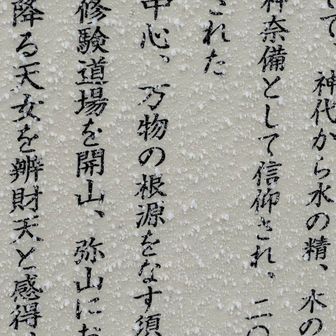 して 神代から水の精、水の
神奈備として信仰され、二
された
中心、万物の根源をなす須
修験道場を開山、弥山にお
降る天女を辨財天と感得、